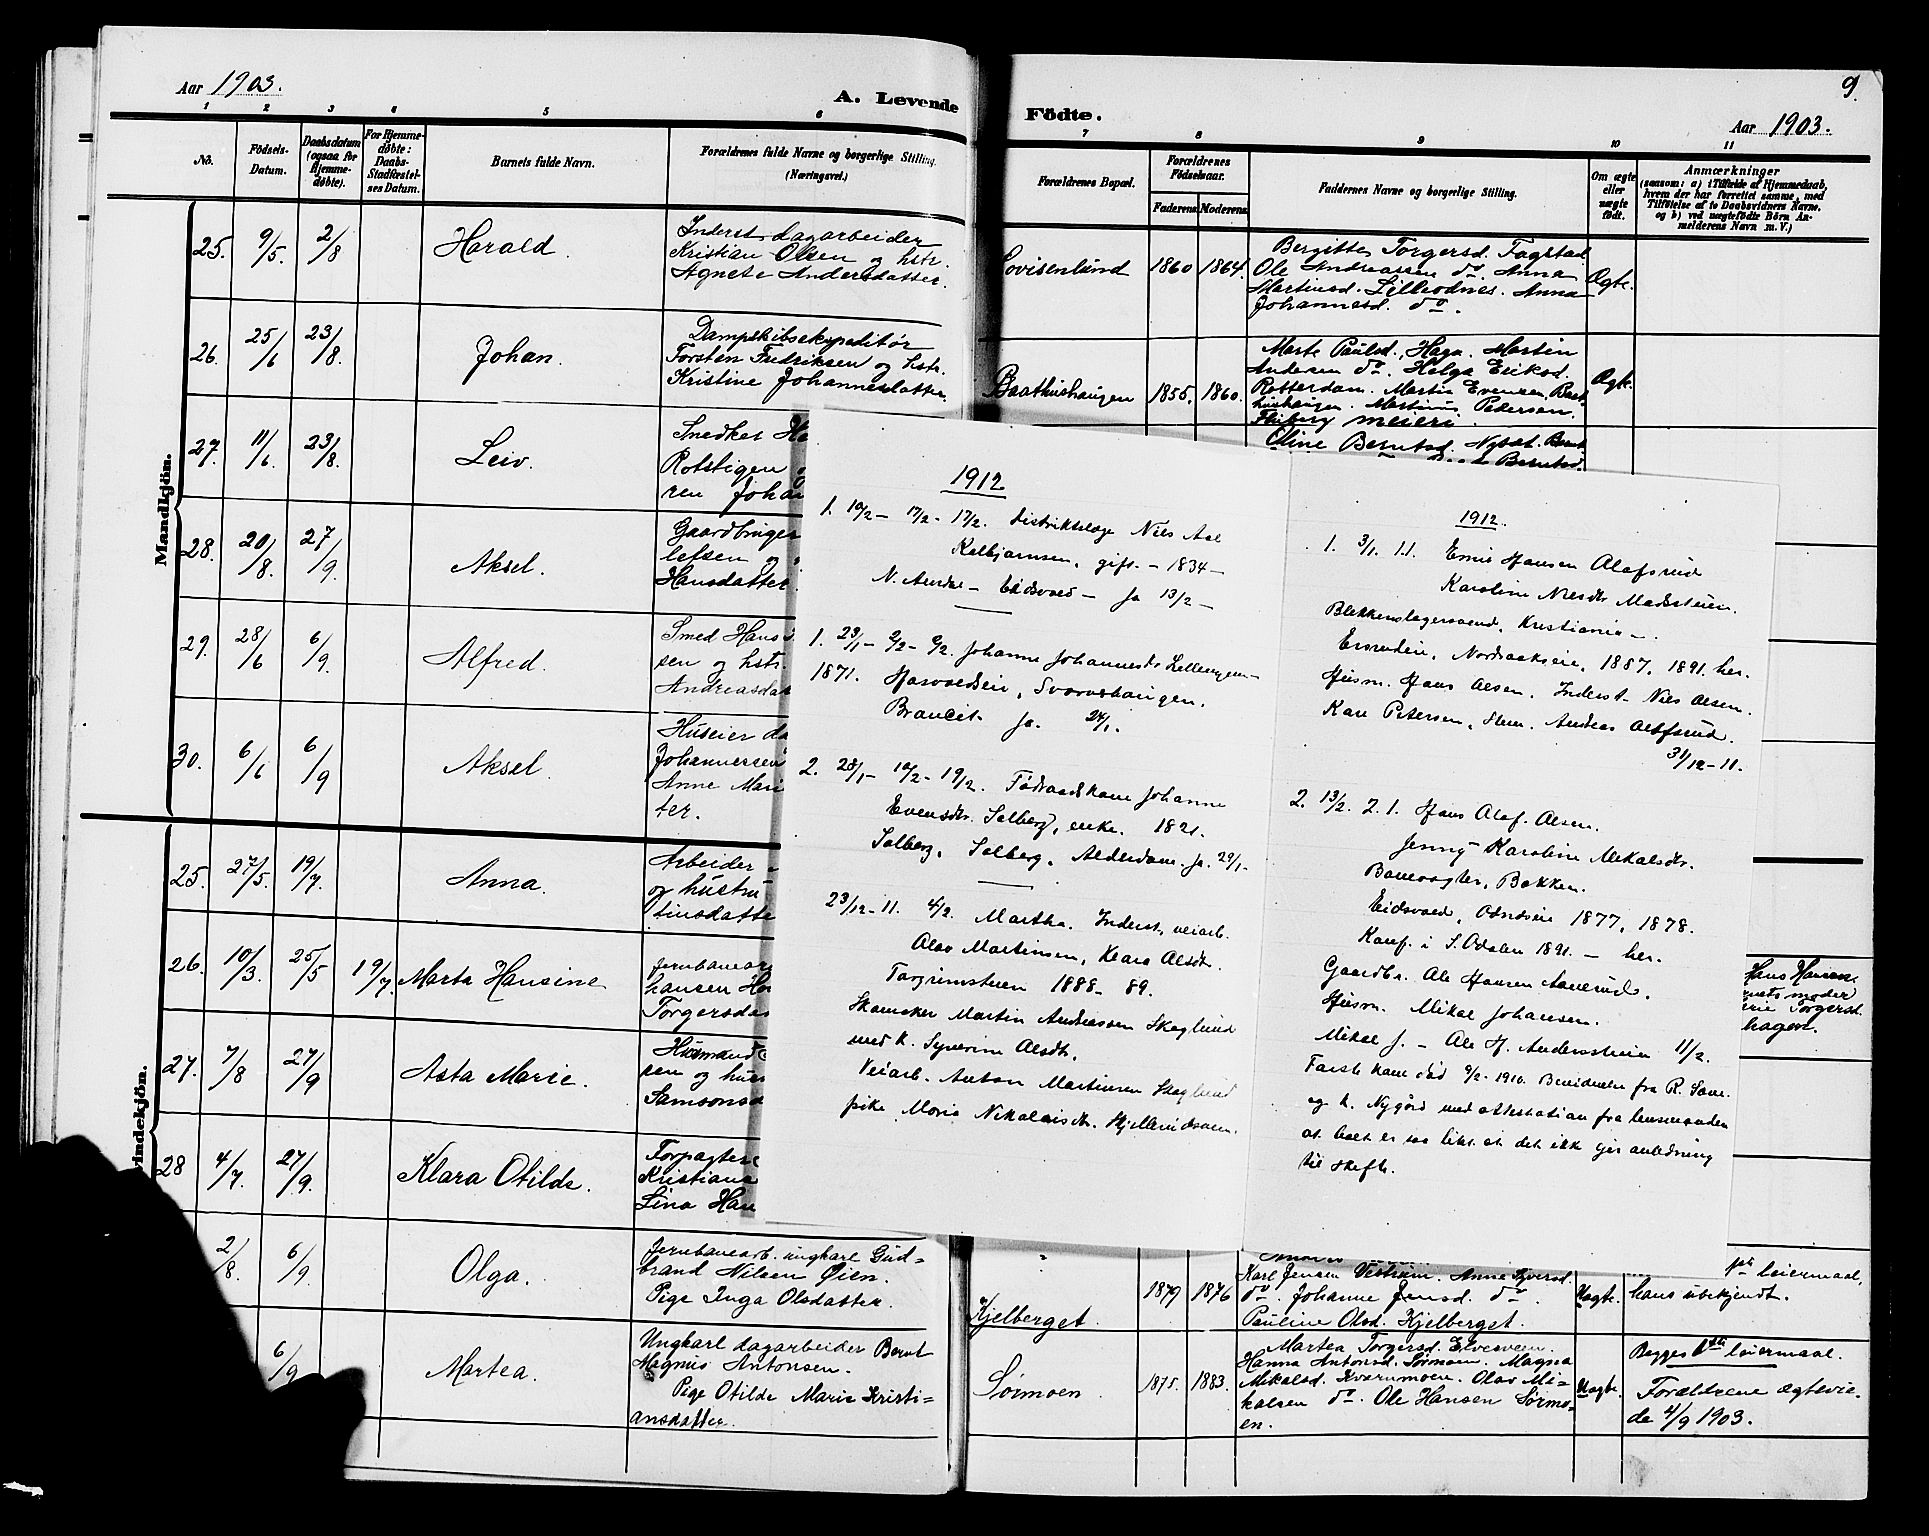 Aar 1903.
A. Levende
Födte.
9.
Aar 1903.
1 2 3 4 5 6
7 8 9 10 11
No.
Födsels-
Datum.
Daabsdatum
(ogsaa for
Hjemme-
döbte).
For Hjemme-
döbte:
Daabs-
Stadfæstel-
ses Datum.
Barnets fulde Navn.
Forældrenes fulde Navne og borgerlige Stilling.
(Næringsvei.)
Forældrenes Bopæl.
Forældrenes
Födselsaar.
Faderens Moderens
Faddernes Navne og borgerlige Stilling.
Om ægte
eller
uægte
født.
Anmærkninger
(saasom: a) i Tilfælde af Hjemmedaab,
hvem der har forrettet samme, med
Tilföielse af to Daabsvidners Navne.
og b) ved uægtefödte Börn An-
melderens Navn m. V.)
Mandkjön.
25. 9/5. 2/8 Harald
Inderst dagarbeider
Kristian Olsen og hstr.
Agnete Andersdatter.
Lovisenlund 1860 1864.
Bergitte Torgersd. Fagstad
Ole Andreassen do. Anna
Martinsd. Lilleodnes. Anna
Johannesd. do.
Ægte.
26. 25/6 23/8. Johan.
Dampskibsekspeditør
Torsten Fredriksen og hstr.
Kristine Johannesdatter.
Baathushaugen 1855. 1860.
Marte Paulsd. Haga. Martin
Andersen do. Helga Eriksd.
Rotterdam. Martin Evensen, Baat-
hushaugen. Martinus Pedersen.
Friberg meieri.
Ægte.
27. 11/6. 23/8. Leiv.
Snedker Ha
Rotstigen
ren Johan
Oline Berntsd. Nysæt. Bernt
Berntsd.
28. 20/8. 27/9. Aksel.
Gaardbruger
lefsen og
Hansdatter
29. 28/6 6/9. Alfred.
Smed Hans
sen og hstr.
Andreasdat
30. 6/6 6/9 Aksel.
Huseier da
Johannersen
Anne Mari
ter.
25. 27/5. 19/7. Anna.
Arbeider
og hustru
tinsdatte
26. 10/3. 25/5 19/7. Marta Hansine
Jernbanear
hansen Ho
Torgersdat
Hans Hansen
nets moder
rie Torgersd.
hagen.
27. 7/8 27/9 Asta Marie.
Husmand
sen og hus
Samsonsd
vindekjön.
28 4/7. 27/9. Klara Otilde.
Forpagter
Kristians
Lina Han
2/8. 6/9. Olga.
Jernbanearb. ungkarl Gud-
brand Nilsen Øien.
Pige Inga Olsdatter.
Kjelberget 1879 1876
Karl Jensen Vestrum. Anne Syversd.
do. Johanne Jensd. do.
Pauline Olsd. Kjelberget.
Uægte.
leiermaal,
hans ubekjendt.
6/9 Martea.
Ungkarl dagarbeider Bernt
Magnus Antonsen.
Pige Otilde Marie Kristi-
ansdatter.
Sørmoen 1875. 1883.
Martea Torgersd. Elvesveen.
Hanna Antonsd. Sørmoen. Magna
Mikalsd. Kvernmoen. Olav Mi-
kalsen do. Ole Hansen Sørmo-
en.
Uægte.
Begges 1ste leiermaal.
Forældrene ægtevie-
de 4/9 1903.
1912
1. 10/2 - 17/2 - 17/2. Distriktslæge Niels Aal
Kolbjørnsen, gift. - 1834 -
N. Aurdal - Eidsvold - Ja 13/2 -
1. 23/1 - 9/2 - 9/2. Johanne Johannesdr. Lillengen -
1871. Harvoldseie, Svarvehaugen.
Brancit. Ja. 24/1.
2. 28/1 - 10/2 - 19/2. Føderaadskone Johanne
Evensdr. Solberg, enke. 1821.
Solberg, Solberg, Alderdom. Ja. 29/1.
23/12 - 11. 4/2. Martha. Inderst, veiarb.
Olav Martinsen, Klara Olsdr.
Torgrimstuen 1888 - 89.
Skomaker Martin Andreassen Skoglund
med k. Syverine Olsdr.
Veiarb. Anton Martinsen Skoglund
pike Moria Nikolaisdr. Skjellerudsveen.
1912.
1. 3/1. 1.1. Emil Hansen Olafsrud
Karoline Nilsdr. Madsstuen.
Blekkenslagersvend, Kristiania -.
Ensrudeie, Nordsetseie, 1887, 1891. her.
Husm. Hans Olsen. Inderst Niels Olsen.
Kare Petersen, Andreas Olafsrud.
31/12 - 11.
2. 13/2. 2.1. Hans Olaf Olsen.
Jenny Karoline Mikalsdr.
Banevogter, Bakken.
Eidsvold, Odnæseie 1877, 1878.
Konf. i S. Odalen 1891. - her.
Gaardbr. Ole Hansen Aanerud.
Husm. Mikal Johansen.
Mikal J. - Ole H. Andersstuen 11/2.
Første kone død 9/2 - 1910. Bevidnelse fra R. Sone.
og k. Nygård med attestation fra lensmanden
at boet er saa lite at det ikke gir anledning
til skifte.